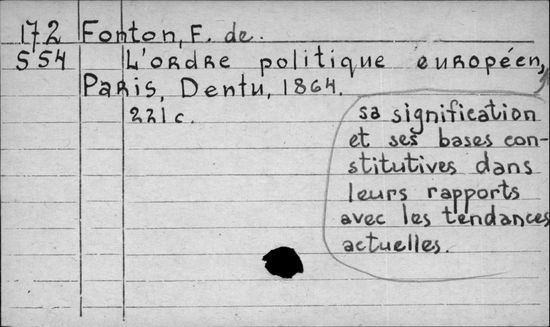 172 Fonton, F. de.
554 L'ordre politique européen,
Paris, Dentu, 1864.
221 c.
sa signification
et ses bases con-
stitutives dans
leurs rapports
avec les tendances
actuelles.